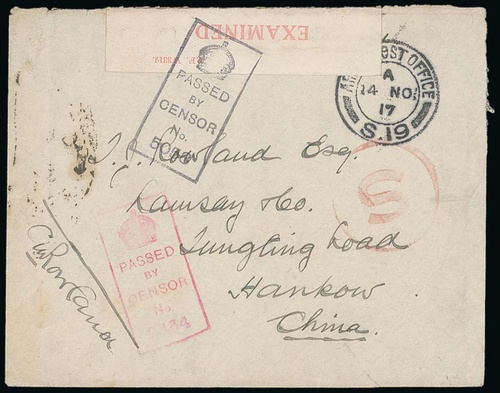 EXAMINED
P.F. W 3319.
PASSED
BY
CENSOR
No.
ARMY POST OFFICE
A
14 NO
17
S.19
T. P. Rowland Esq.
Ramsay & Co.
Tungling Road
Hankow
China.
PASSED
BY
CENSOR
No.
C.W. Rowland